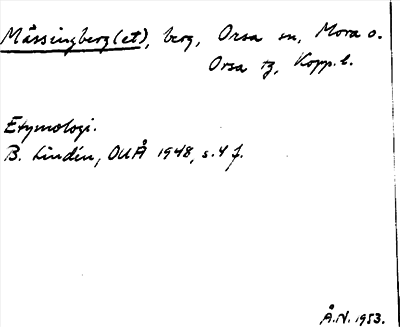 Mässingberg(et), berg, Orsa sn, Mora o.
Orsa tg, Kopp. l.
Etymologi.
B. Lindén, OUÅ 1948, s. 4 f.
Å.N. 1953.